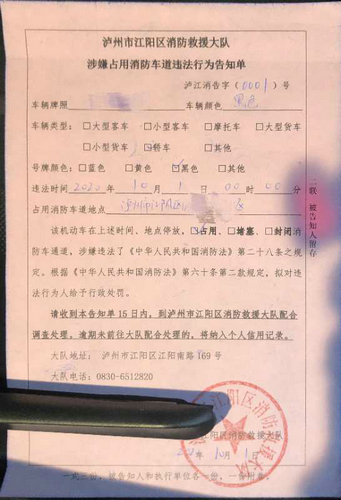 泸州市江阳区消防救援大队
涉嫌占用消防车道违法行为告知单
泸江消告字(0001)号
车辆牌照 车辆颜色:黑色
车辆类型:□大型客车 □小型客车 □摩托车 □大型货车
□小型货车 ☑轿车 □其他
号牌颜色:□蓝色 □黄色 ☑黑色 □其他
违法时间 2020年10月1日00时00分
占用消防车道地点 泸州市江阳区
该机动车在上述时间、地点停放,☑占用、□堵塞、□封闭消
防车通道,涉嫌违法了《中华人民共和国消防法》第二十八条之规
定。根据《中华人民共和国消防法》第六十条第二款规定,拟对违
法行为人给予行政处罚。
请收到本告知单15日内,到泸州市江阳区消防救援大队配合
调查处理,逾期未前往大队配合处理的,将纳入个人信用记录。
大队地址: 泸州市江阳区江阳南路169号
大队电话:0830-6512820
江阳区消防救援大队
年10月1日
一式二份,被告知人和执行单位各一份,一告附章。
二联 被告知人留存